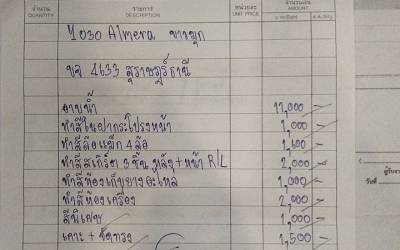 จำนวน รายการ หน่วยละ จำนวนเงิน
QUANTITY DESCRIPTION UNIT PRICE AMOUNT
Almera ขาวมุก
ขอ 4633 สุราษฎร์ธานี
อาบน้ำ 17,000 -
ทำสีในฝากระโปรงหน้า 1,000 -
ทำสีล้อแม็ก 4 ล้อ
ทำสีสเกิร์ต 3 ชิ้น หลัง + หน้า R/L 2,000 -
ทำสีห้องเก็บยางอะไหล่ 1,000 -
ทำสีห้องเครื่อง 2,000 -
สีพิเศษ 1,000 -
เคาะ + 1,500 -
วันที่